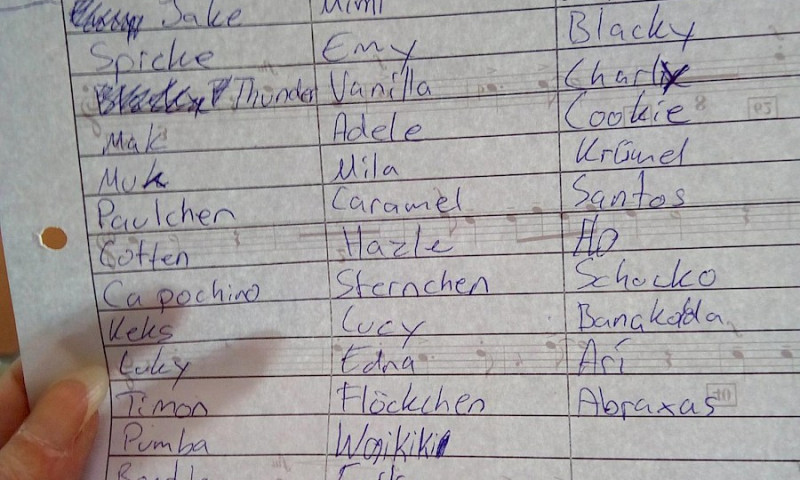 Jake Mimi
Spicke Emy Blacky
Thunder Vanilla Charly
Mak Adele Cookie
Muk Mila Krümel
Paulchen Caramel Santos
Cotten Hazle
Capochino Sternchen Schocko
Keks Lucy
Luky Edna Ari
Timon Flöckchen Abraxas
Pumba Waikiki